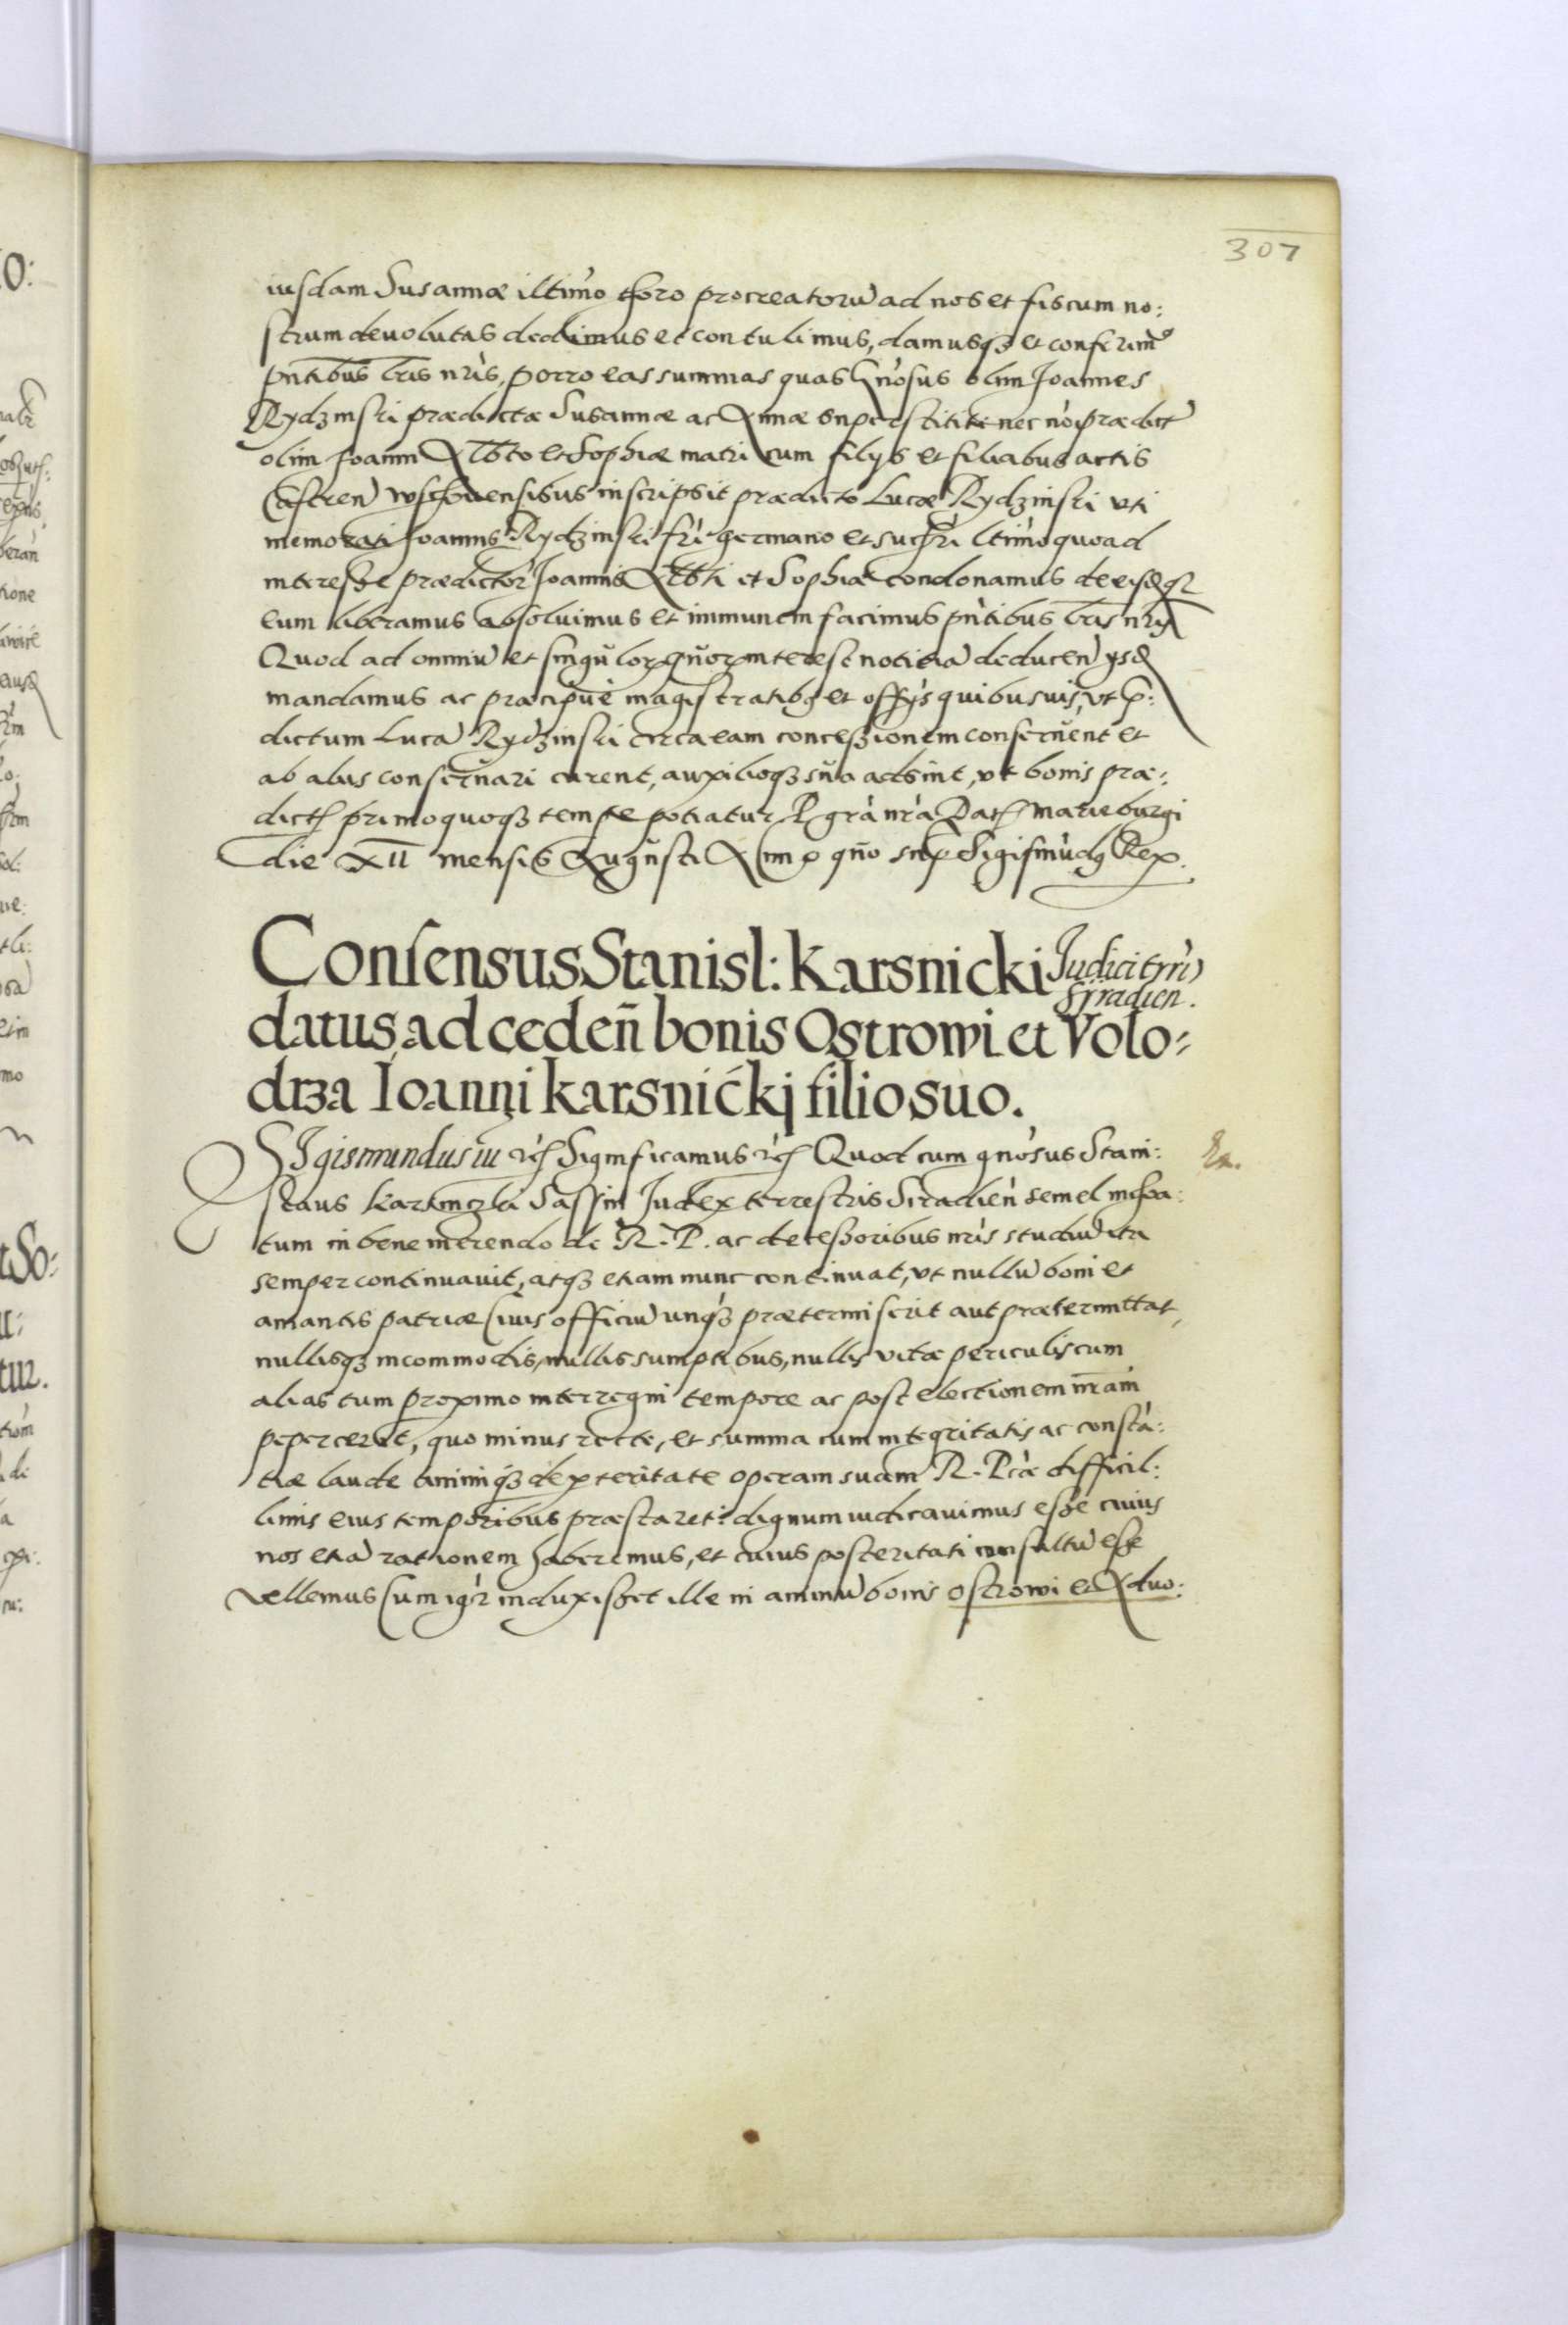 307
iusdam Susannæ illtimo thoro procreatorū ad nos et fiscum no:
strum devolutas dedimus et contulimus, damusq3 et conferim9
pntibus lris nris, porro eas summas quas Gnosus olim Joannes
Rydzinski prædictæ Susannæ ac Annæ superstiti nec nō prædict
olim Joanni Alb̄to et Sophiæ matri cum filijs et filiabus actis
Castren wschowensibus inscripsit prædicto Lucæ Rydzinski uti
memorati Joannis Rydzinski fri germano et sucšri ltimo quoad
interesse prædictor Joannis Alb̄ti et Sophiæ condonamus de eisq3
eum liberamus absolvimus et immunem facimus pntibus lris nris
Quod ad omniū et singulor quor interest notitiā deducen ijsd
mandamus ac præcipue magistratib9 et offijs quibusuis, ut p:
dictum Lucā Rydzinski circa eam concessionem conseruent et
ab alijs conseruari curent, auxilioq3 suo adsint, ut bonis præ:
dict primo quoq3 tempe potiatur P grā nrā Dat Marieburgi
die XII mensis Augusti Anno quo supra Sigismūd9 Rex.
Consensus Stanisl: Karsnicki Judici trri Siradien.
datus ad ceden̄ bonis Ostrowi et Volo:
drza Ioanni karsnićkj filio suo.
SIgismundus iii rc Significamus rc Quod cum gnosus Stani: Ex.
slaus Karsniczki Sassin Judex terrestris Siradien semel inchoa:
tum in bene merendo de R. P. ac decessoribus nris studiū ita
semper continuavit, atq3 etiam nunc continuat, ut nullū boni et
amantis patriæ Civis officiū unq3 prætermiserit aut prætermittat,
nullisq3 incommodis, nullis sumptibus, nullis vitæ periculis cum
alias tum proximo interregni tempore ac post electionem nram
pepercerit, quo minus recte, et summa cum integritatis ac constā:
tiæ laude animiq3 dexteritate operam suam R. P. difficil:
limis eius temporibus præstaret: dignum iudicavimus esse cuius
nos etiā rationem haberemus, et cuius posteritati consultū esse
vellemus Cum igr induxisset ille in animū bonis Ostrowi et Aduo: